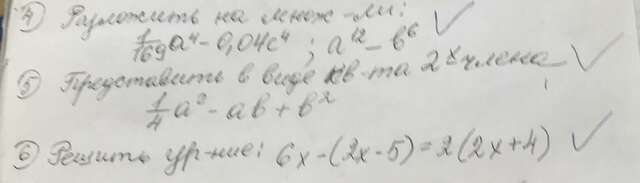 ④ Разложить на множ-ли:
1/169 a⁴ - 0,04c⁴ ; a¹² - b⁶
⑤ Представить в виде кв-та 2ˣ члена
1/4 a² - ab + b²
⑥ Решить ур-ние: 6x-(2x-5)=2(2x+4)